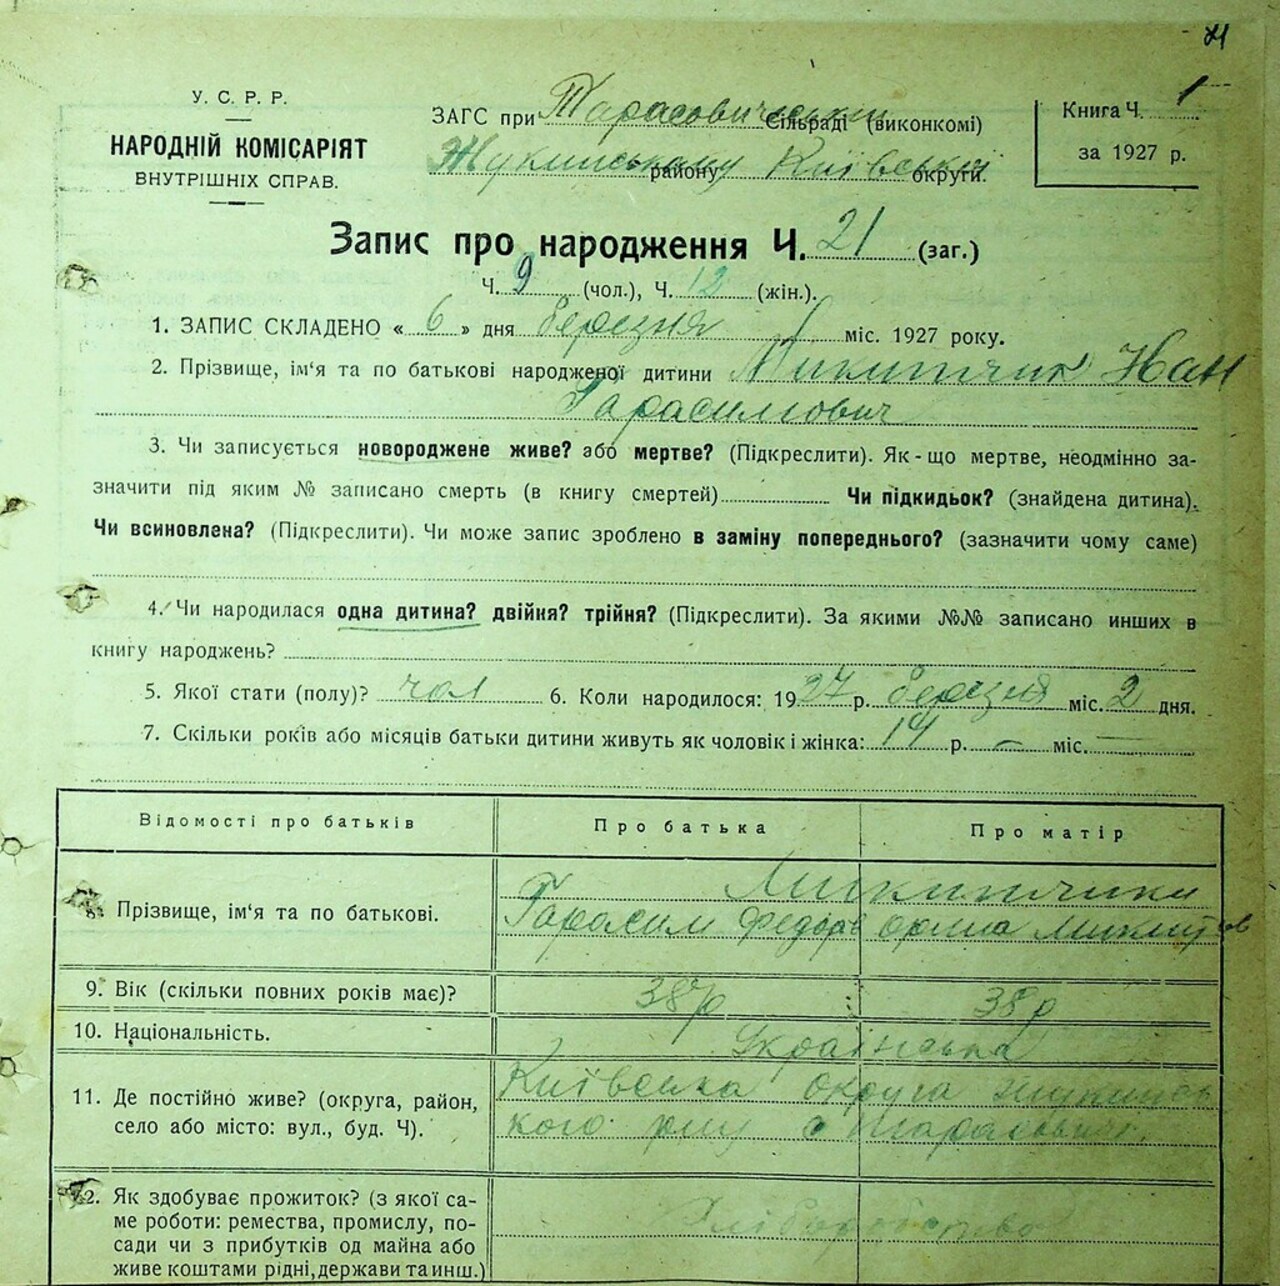 У. С. Р. Р.
НАРОДНІЙ КОМІСАРІЯТ
ВНУТРІШНІХ СПРАВ.
ЗАГС при Тарасовическій Сільраді (виконкомі)
Жукинському району Київської округи.
Книга Ч. 1
за 1927 р.
Запис про народження Ч. 21 (заг.)
Ч. 9 (чол.), Ч. 12 (жін.).
1. ЗАПИС СКЛАДЕНО « 6 » дня березня міс. 1927 року.
2. Прізвище, ім‘я та по батькові народженої дитини Микитчик Иван
Гарасимович
3. Чи записується новороджене живе? або мертве? (Підкреслити). Як-що мертве, неодмінно за-
значити під яким № записано смерть (в книгу смертей) Чи підкидьок? (знайдена дитина).
Чи всиновлена? (Підкреслити). Чи може запис зроблено в заміну попереднього? (зазначити чому саме)
4. Чи народилася одна дитина? двійня? трійня? (Підкреслити). За якими №№ записано инших в
книгу народжень?
5. Якої стати (полу)? чол 6. Коли народилося: 1927 р. березня міс. 2 дня.
7. Скільки років або місяців батьки дитини живуть як чоловік і жінка: 14 р. — міс. —
Відомості про батьків Про батька Про матір
Микитчики
Прізвище, ім‘я та по батькові. Гарасим Федоров Орина Микитов
9. Вік (скільки повних років має)? 38 р 38 р
10. Національність. Українська
11. Де постійно живе? (округа, район, Київська округа Жукинсь
село або місто: вул., буд. Ч). кого рну с Тарасовичі
12. Як здобуває прожиток? (з якої са-
ме роботи: ремества, промислу, по- Хліборобство
сади чи з прибутків од майна або
живе коштами рідні, держави та инш.)